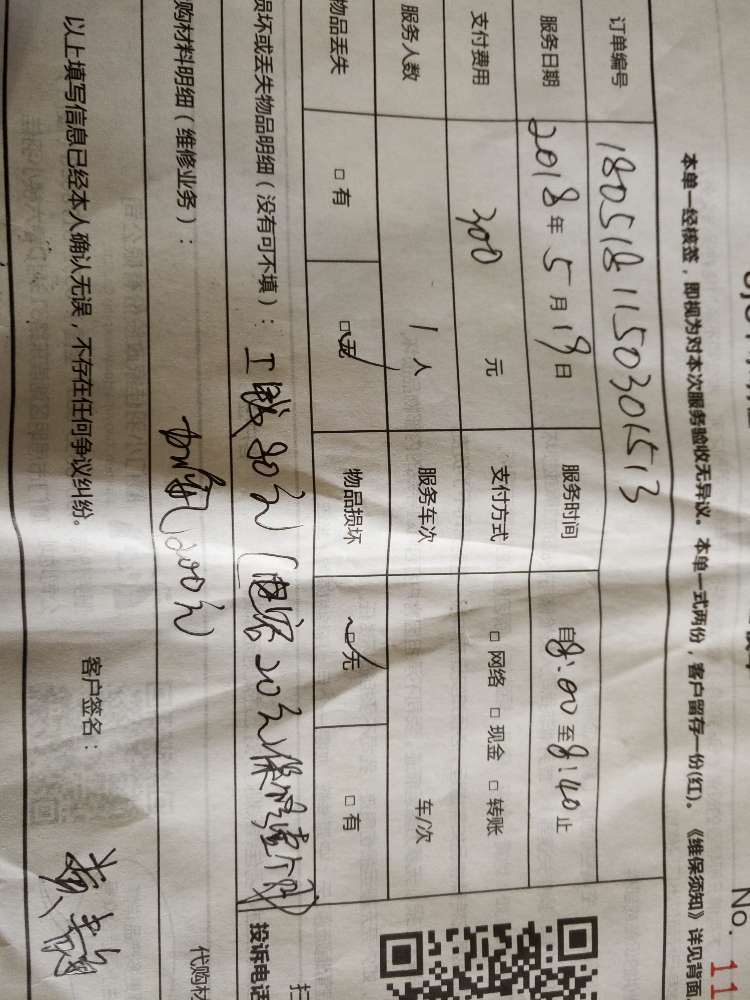 No. 11
本单一经核签，即视为对本次服务验收无异议。本单一式两份，客户留存一份(红)。《维保须知》详见背面
订单编号 180518115030 1513
服务日期 2018年5月19日 服务时间 自8:00至8:40止
支付费用 300元 支付方式 □网络 □现金 □转账
服务人数 1人 服务车次 车/次
物品丢失 □有 □无 物品损坏 □无 □有
损坏或丢失物品明细（没有可不填）：工钱80元（电容20元保修壹个月）
购材料明细（维修业务）： 加氟200元
投诉电话
代购材
以上填写信息已经本人确认无误，不存在任何争议纠纷。 客户签名：